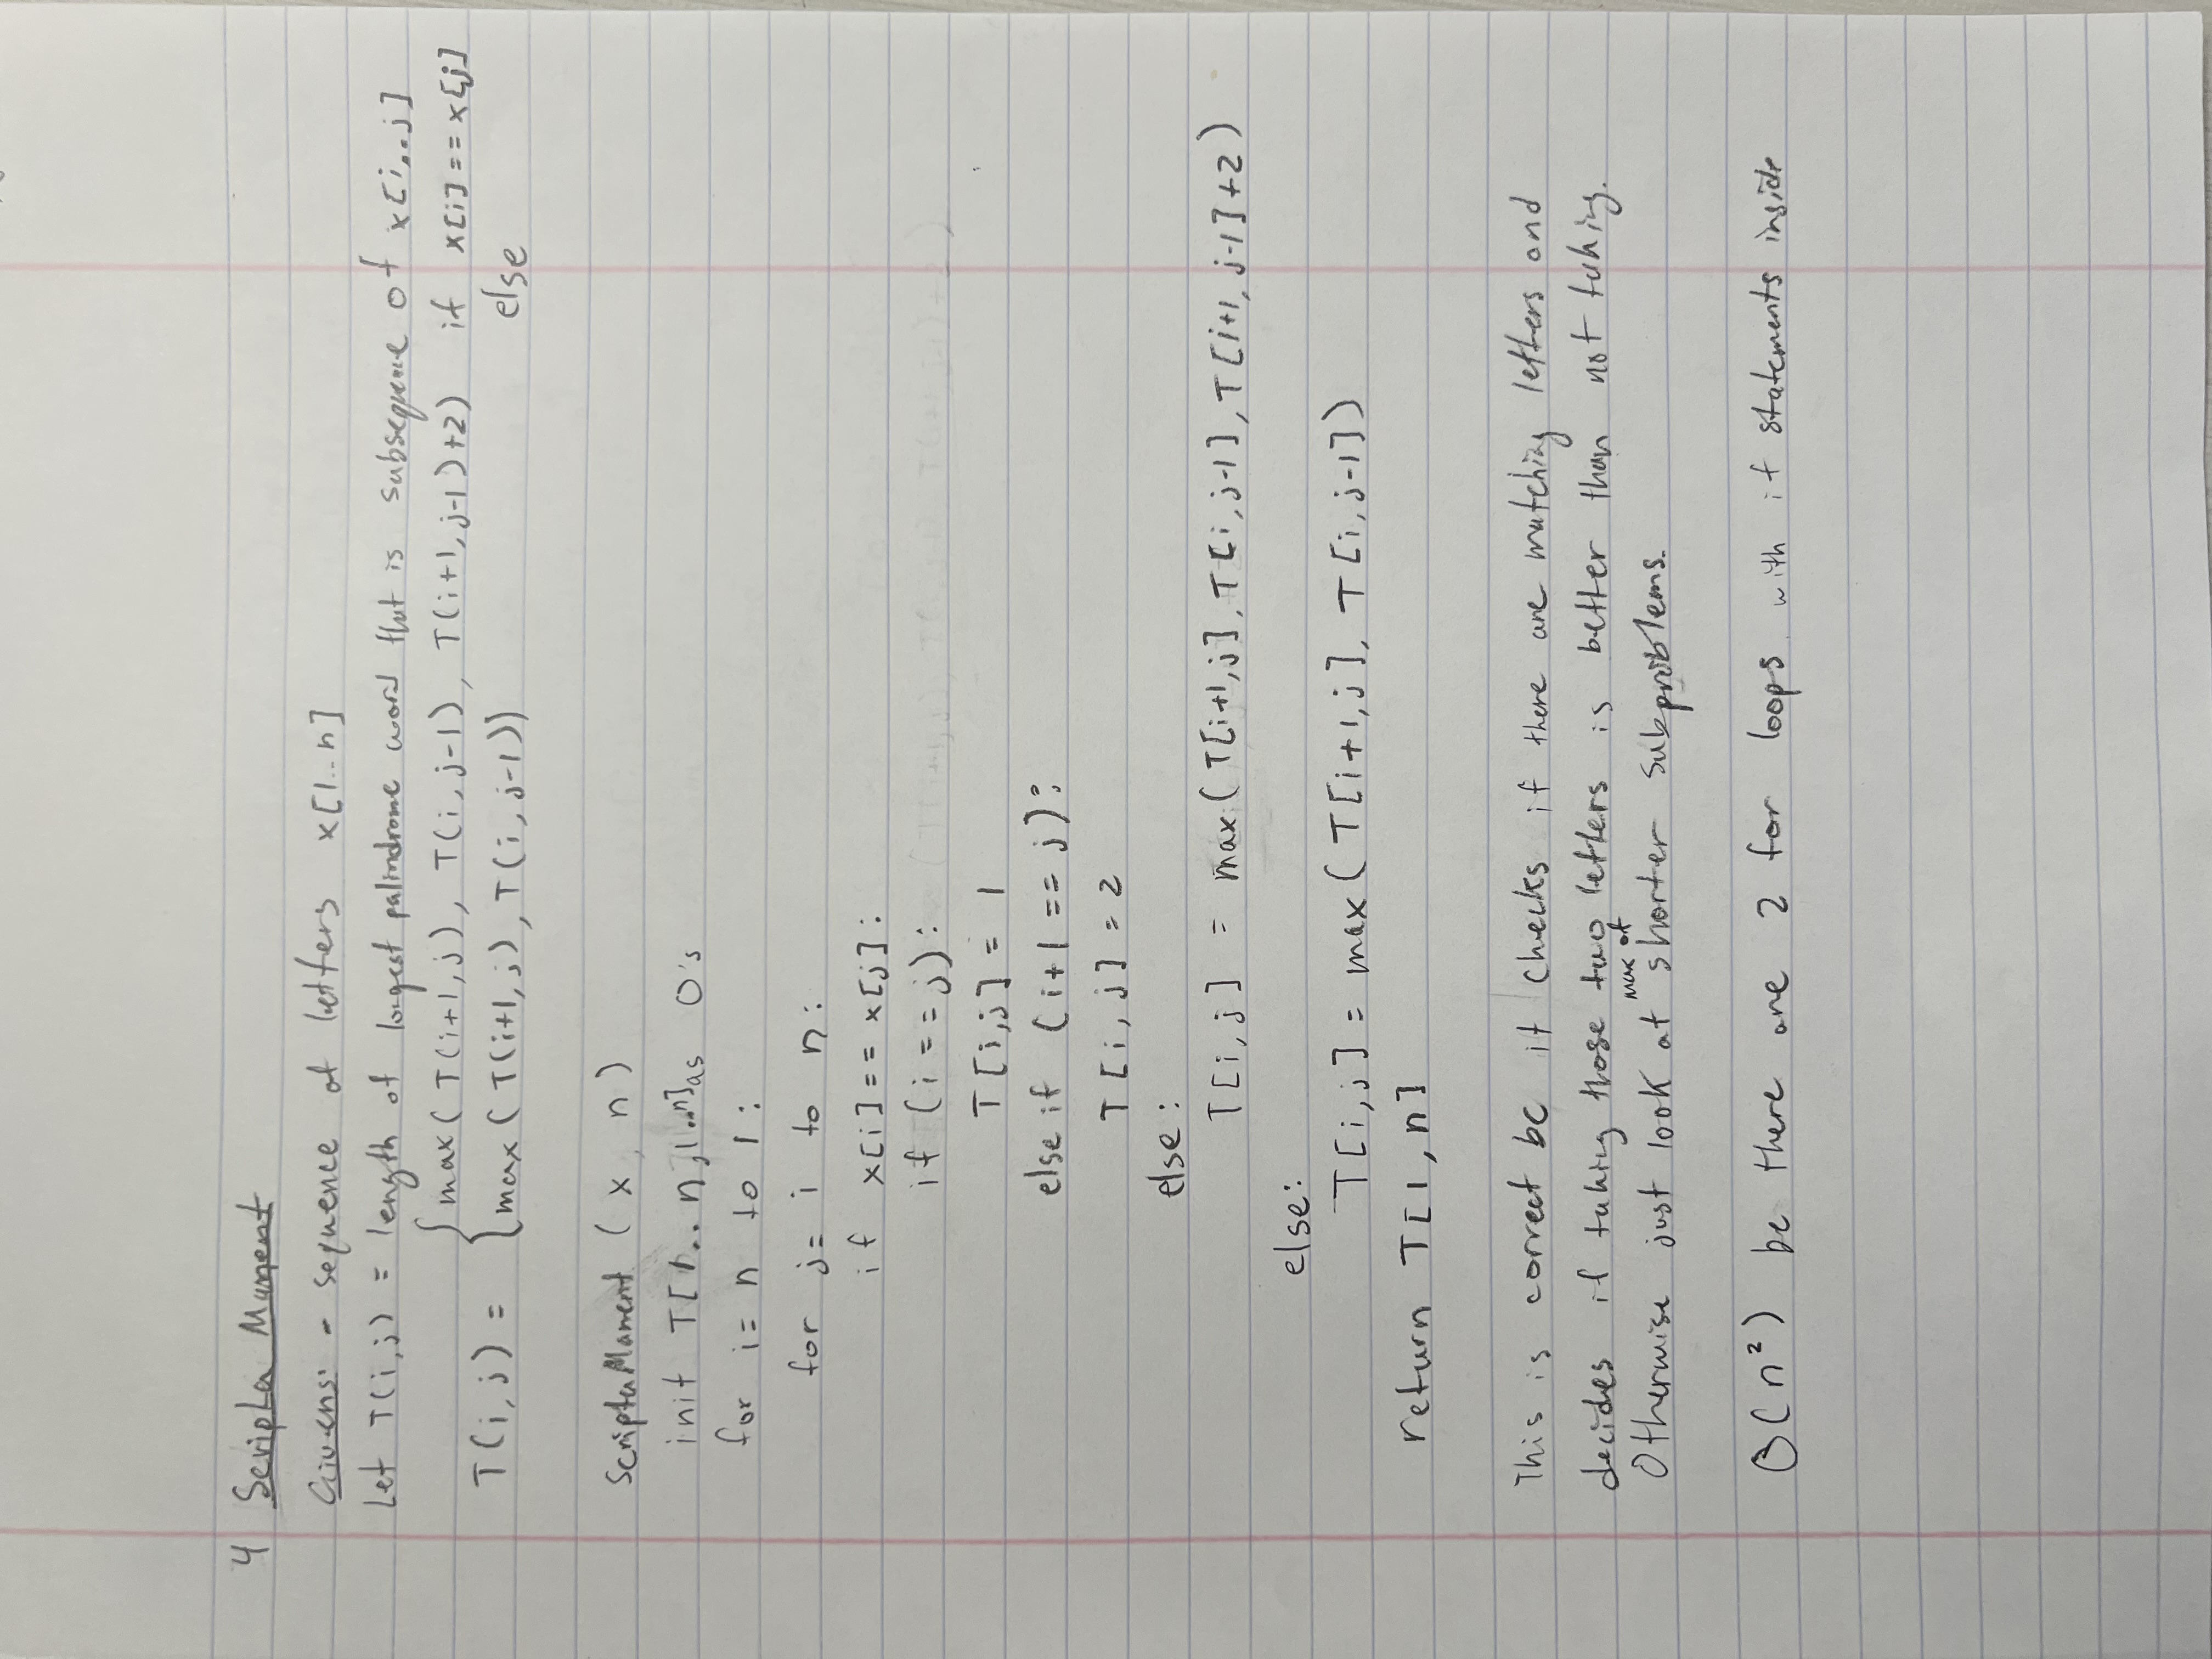 4 Scripta Manent
Givens: - sequence of letters x[1..n]
Let T(i,j) = length of longest palindrome word that is subsequence of x[i..j]
T(i,j) = { max( T(i+1,j), T(i,j-1), T(i+1,j-1)+2) if x[i]==x[j]
{ max( T(i+1,j), T(i,j-1)) else
ScriptaManent (x, n)
init T[1..n,1..n] as 0's
for i= n to 1:
for j= i to n:
if x[i]== x[j]:
if (i==j):
T[i,j] = 1
else if (i+1 == j):
T[i,j] = 2
else:
T[i,j] = max( T[i+1,j], T[i,j-1], T[i+1,j-1]+2)
else:
T[i,j] = max( T[i+1,j], T[i,j-1])
return T[1,n]
This is correct bc it checks if there are matching letters and
decides if taking those two letters is better than not taking.
Otherwise just look at max of shorter subproblems.
O(n²) bc there are 2 for loops with if statements inside